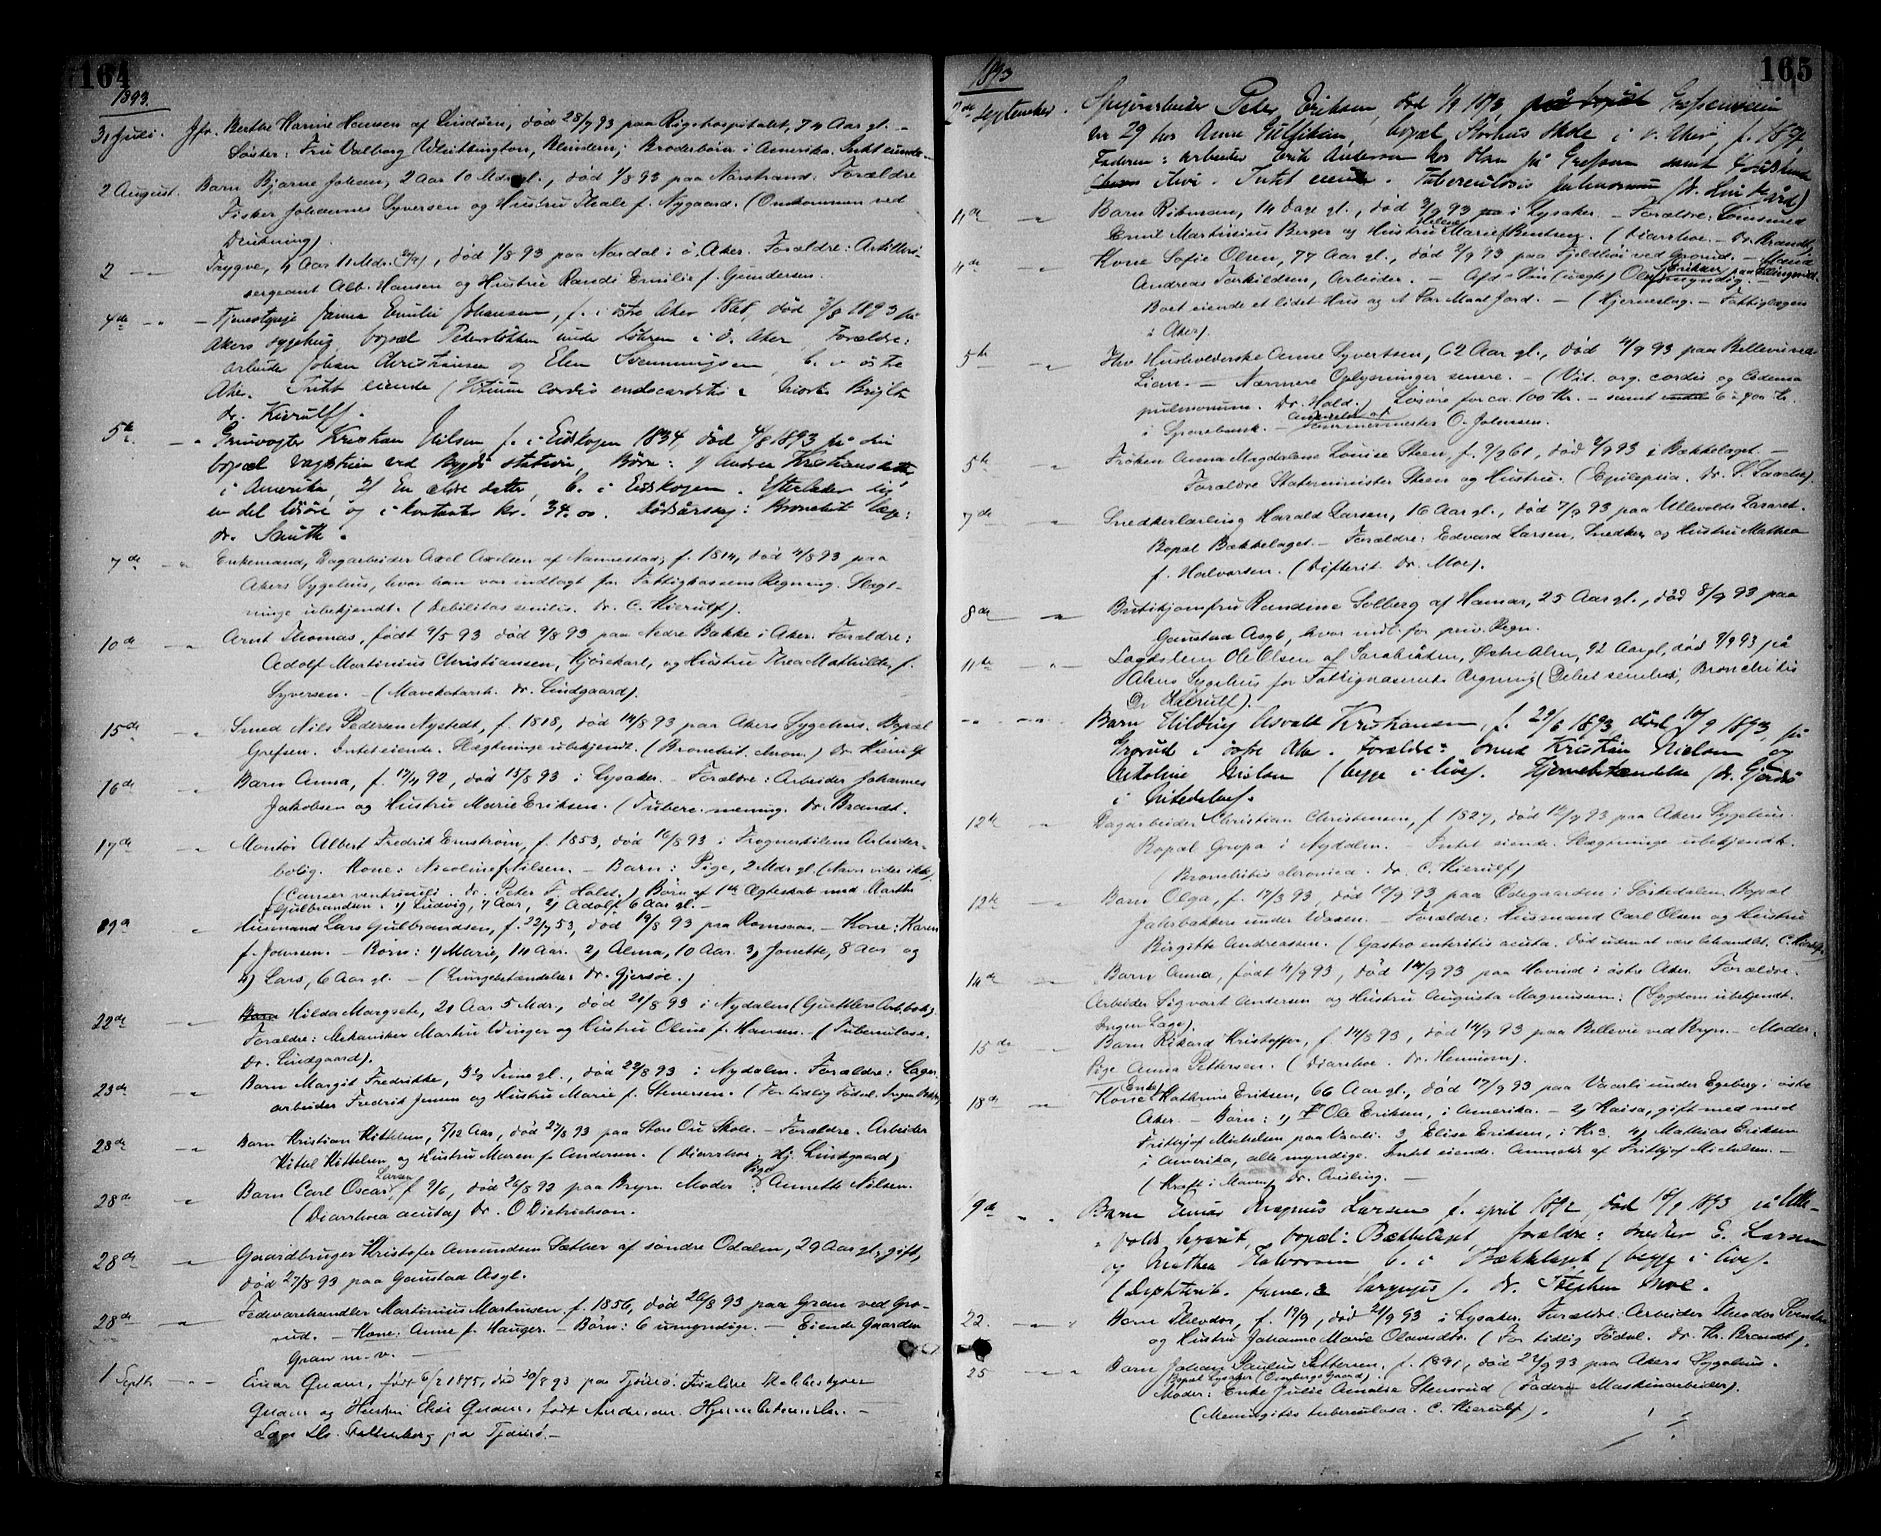 164
1893.
31 Juli. Jfr. Berthe Karine Hansen af Lindøen, død 28/7 93 paa Rigshospitalet, 74 Aar gl. –
Søster: Fru Valborg Whittington, Blindern; Broderbørn i Amerika. Intet eiende –
2 August. Barn Bjarne Johsen, 2 Aar 10 Mdr gl., død 1/8 93 paa Narstrand. Forældre
Fisker Johannes Syversen og Hustru Thale f. Nygaard. (Omkommen ved
Drukning).
2 – Trygve, 4 Aar 11 Mdr., død 1/8 93 paa Nordal i ø. Aker. Forældre: Artilleri-
sergeant Alb. Hansen og Hustru Randi Emilie f. Gundersen.
4de – Tjenestepige Janna Emilie Johansen, f. i østre Aker 1868, død 3/8 1893 på
Akers sygehus, bopæl Petersløkken under Løhren i ø. Aker. Forældre:
arbeider Johan Christiansen og Elen Svenningsen, b. i østre
Aker. Intet eiende (Vitium cordis endocarditis & Morb. Brigtii
dr. Kierulf).
5te – Gruvogter Kristian Nilsen f. i Eidskogen 1834 død 4/8 1893 på sin
bopæl vagtstuen ved Bygdø station. Børn: 1) Andrea Kristiansdatter
i Amerika, 2) En ældre datter, b. i Eidskogen. Efterlader sig
en del løsøre og i kontanter kr. 34.00. Dødsårsag: Bronchit læge:
dr. Smith.
7de – Enkemand, Dagarbeider Axel Axelsen af Nannestad, f. 1814, død 4/8 93 paa
Akers Sygehus, hvor han var indlagt for Fattigkassens Regning. Slægt-
ninge ubekjendt. (Debilitas senilis. Dr. C. Kierulf).
10de – Arnt Thomas, født 9/5 93 død 9/8 93 paa Nedre Bakke i Aker. Forældre:
Adolf Martinius Christiansen, Kjørekarl, og Hustru Thea Mathilde, f.
Syversen. – (Mavekatarrh. Dr. Lindgaard).
15de – Smed Nils Pedersen Nystedt, f. 1818, død 14/8 93 paa Akers Sygehus. Bopæl
Grefsen. Intet eiende. Slægtninge ubekjendt. (Bronchit. chron.) Dr. Kierulf
16de – Barn Anna, f. 17/11 92, død 15/8 93 i Lysaker. – Forældre: Arbeider Johannes
Jakobsen og Hustru Marie Eriksen. (Tuberc. mening. Dr. Brandt.
17de – Montør Albert Fredrik Ernstrøm, f. 1853, død 16/8 93 i Frognerkilens Arbeider-
bolig. Kone: Nicoline f. Nilsen. – Barn: Pige, 2 Mdr gl. (Navn vides ikke)
(Cancer ventriculi. Dr. Peter F. Holst.) Børn af 1ste Ægteskab med Marthe
Gulbrandsen: 1) Ludvig, 7 Aar, 2) Adolf, 6 Aar gl. –
19de – Husmand Lars Gulbrandsen, f. 22/7 53, død 19/8 93 paa Romsaas. – Kone: Karen
f. Johnsen. – Børn: 1) Marie, 14 Aar. 2) Alma, 10 Aar. 3) Jonette, 8 Aar og
4) Lars, 6 Aar gl. – (Lungebetændelse. Dr. Gjersøe.)
22de – Barn Hilda Margrete, 20 Aar 5 Mdr., død 21/8 93 i Nydalen (Guttlers Arb.bolig)
Forældre: Mekaniker Martin Winger og Hustru Oline f. Hansen. (Tuberculose.
Dr. Lindgaard).
23de – Barn Margit Fredrikke, 3½ Time gl., død 22/8 93 i Nydalen. Forældre: Lager-
arbeider Fredrik Jensen og Hustru Marie f. Stenersen. (For tidlig Fødsel.
28de – Barn Kristian Kittelsen, 5/12 Aar, død 27/8 93 paa Store Ou Skole. – Forældre. Arbeider
Kittel Kittelsen og Hustru Maren f. Andersen. (Diarrhoe. Hj. Lindgaard)
28de – Barn Carl Oscar Larsen, f. 9/6, død 26/8 93 paa Bryn. Moder: Pige Annette Nilsen.
(Diarrhoea acuta) Dr. O Dietrichson.
28de – Gaardbruger Kristofer Amundsen Sæther af søndre Odalen, 29 Aar gl., gift,
død 27/8 93 paa Gaustad Asyl.
28de – Fedevarehandler Martinius Martinsen f. 1856, død 26/8 93 paa Gran ved Gro-
rud. – Kone: Anne f. Hauger. – Børn: 6 umyndige. – Eiende Gaarden
Gran m. v. –
1 Septbr – Einar Gnam, født 6/2 1875, død 30/8 93 paa Tjømø. Forældre Malebestyrer
Gnam og Hustru Elise Gnam, født Andersen. Hjernebetændelse. –
Læge Dr. Faltenberg paa Tjømø. –
165
1893
2de September. Spigerarbeider Peter Eriksen, død 1/9 1893 på bopæl Grefsenveien
nr 29 hos Anne Gulliksen, bopæl Storhus skole i v. Aker, f. 1859,
Faderen: arbeider Erik Andersen hos Olsen på Grefsen
i live. Intet eiende. Tuberculosis pulmonum (dr. Lindgård)
4de – Barn Ribman, 14 Dage gl., død 3/9 93 i Lysaker. – Forældre:
Emil Martinius Berger og Hustru Helene Marie f. Bentsen. (Diarrhoe. – Dr. Brandt)
4de – Kone Sofie Olsen, 77 Aar gl., død 2/9 93 paa Fjeldhøi ved Grorud. – Mand
Andreas Torkildsen, Arbeider. –
Boet eiende et lidet Hus og et Par Maal Jord. – (Hjerneslag. – Fattiglægen
i Aker).
5te – Fhv Husholderske Anne Syvertsen, 62 Aar gl., død 4/9 93 paa Bellevue ved
Lian. – Nærmere Oplysninger senere. – (Vit. org. cordis og Oedema
pulmonum. Dr. Hald.) Løsøre for ca. 100 Kr. – samt 6 à 400 Kr.
i Sparebank. – Anmeldt af Tømmermester O. Johnsen.
5te – Frøken Anna Magdalene Louise Steen, f. 9/9 61, død 4/9 93 i Bækkelaget. –
Forældre Statsminister Steen og Hustru. (Epilepsia. Dr.
7de – Snedkerlærling Harald Larsen, 16 Aar gl., død 7/9 93 paa Ullevolds Lazaret.
Bopæl Bækkelaget. – Forældre: Edvard Larsen, Snedker, og Hustru Mathea
f. Halvorsen. (Difterit. Dr. Moe).
8de – Butikjomfru Randine Solberg af Hamar, 25 Aar gl., død 8/9 93 paa
Gaustad Asyl, hvor indl. for priv. Regn.
11te – Lægdslem Ole Olsen af Sorabraaten, Østre Aker, 92 Aar gl, død 9/9 93 på
Akers Sygehus for Fattigvæsenets Regning (Debet senilis, Bronchitis
Dr Kierulf).
– Barn Hilding Osvald Kristiansen, f. 29/6 1893 død 10/9 1893, på
Grorud i østre Aker. Forældre: Smed Kristian Nielsen og
Antoline Nielsen (begge i live). Hjernebetændelse (dr. Gjersø
i Nitedalen).
12te – Dagarbeider Christian Christensen, f 1827, død 12/9 93 paa Akers Sygehus.
Bopæl Gropa i Nydalen. – Intet eiende. Slægtninge ubekjendt.
(Bronchitis chronica. Dr. C. Kierulf)
12te – Barn Olga, f. 17/3 93, død 10/9 93 paa Ødegaarden i Sørkedalen. Bopæl
Jahrbakken under Waxen. – Forældre: Husmand Carl Olsen og Hustru
Birgitte Andreassen. (Gastro enteritis acuta. Død uden at være behandlet. C. Kierulf).
14de – Barn Anna, født 4/9 93, død 14/9 93 paa Hovind i østre Aker. Forældre.
Arbeider Sigvart Andersen og Hustru Augusta Magnussen: (Sygdom ubekjendt.
Ingen Læge).
15de – Barn Rikard Kristoffer, f. 14/8 93, død 14/9 93 paa Bellevue ved Bryn. – Moder:
Pige Anna Pettersen. (Diarrhoe. Dr. Hennum).
18de – Kone Enke Kathrine Eriksen, 66 Aar gl., død 17/9 93 paa Vaarli under Egeberg i østre
Aker. – Børn: 1) Ole Eriksen, i Amerika. – 2) Kaisa, gift med med
Frithjof Michelsen paa Vaarli. 3 Elise Eriksen, i Kr.a 4) Mathias Eriksen
i Amerika, alle myndige. Intet eiende. Anmeldt af Frithjof Michelsen. –
(Kræft i Maven. Dr. Quisling. –
19de – Barn Einar Magnus Larsen, f. april 1892, død 18/9 1893 på Ulle-
volds lazaret, bopæl: Bækkelaget, forældre: snedker E. Larsen
og Mathea Halvorsen, b. i Bækkelaget (begge i live).
(Diphterit. faucis & laryngis). dr. Stephen Moe.
22. – Barn Theodor, f. 19/9, død 21/9 93 i Lysaker. Forældre: Arbeider Theodor Svendsen
og Hustru Johanne Marie Olavsdtr. (For tidlig Fødsel. Dr. Kr. Brandt).
25 – Barn Johan Paulus Pettersen, f. 1891, død 22/9 93 paa Akers Sygehus.
Bopæl Lysaker (Ombergs Gaard).
Moder: Enke Julie Amalie Stensrud (Fader Maskinarbeider).
(Meningitis tuberculosa. C. Kierulf).